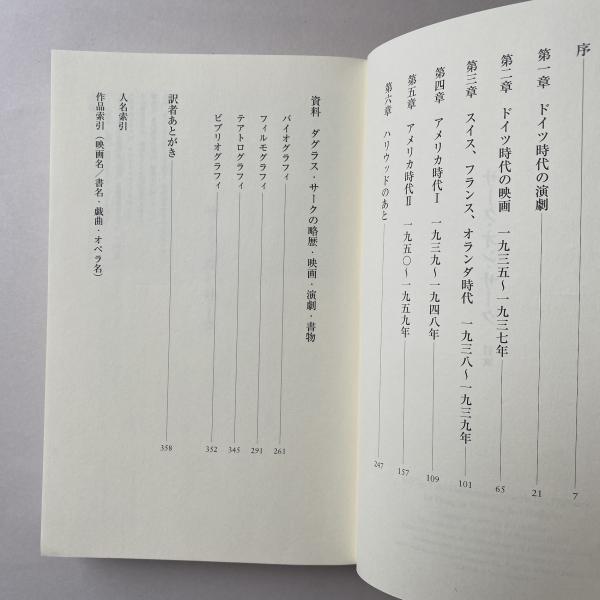 序 7
第一章 ドイツ時代の演劇 21
第二章 ドイツ時代の映画 一九三五〜一九三七年 65
第三章 スイス、フランス、オランダ時代 一九三八〜一九三九年 101
第四章 アメリカ時代Ⅰ 一九三九〜一九四八年 109
第五章 アメリカ時代Ⅱ 一九五〇〜一九五九年 157
第六章 ハリウッドのあと 247
資料 ダグラス・サークの略歴・映画・演劇・書物
バイオグラフィ 261
フィルモグラフィ 291
テアトログラフィ 345
ビブリオグラフィ 352
訳者あとがき 358
人名索引
作品索引(映画名/書名・戯曲・オペラ名)